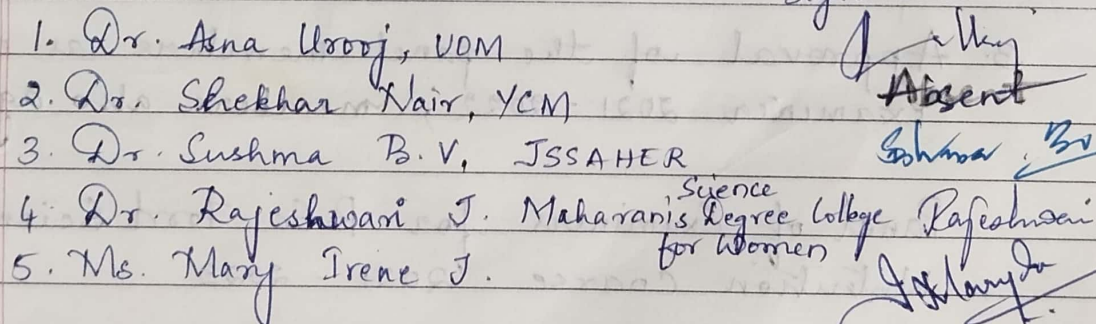 1. Dr. Asna Urooj, UOM
2. Dr. Shekhar Nair, YCM Absent
3. Dr. Sushma B.V, JSSAHER Sushma. BV
4. Dr. Rajeshwari J. Maharanis Science Degree College for Women Rajeshwari
5. Ms. Mary Irene J.